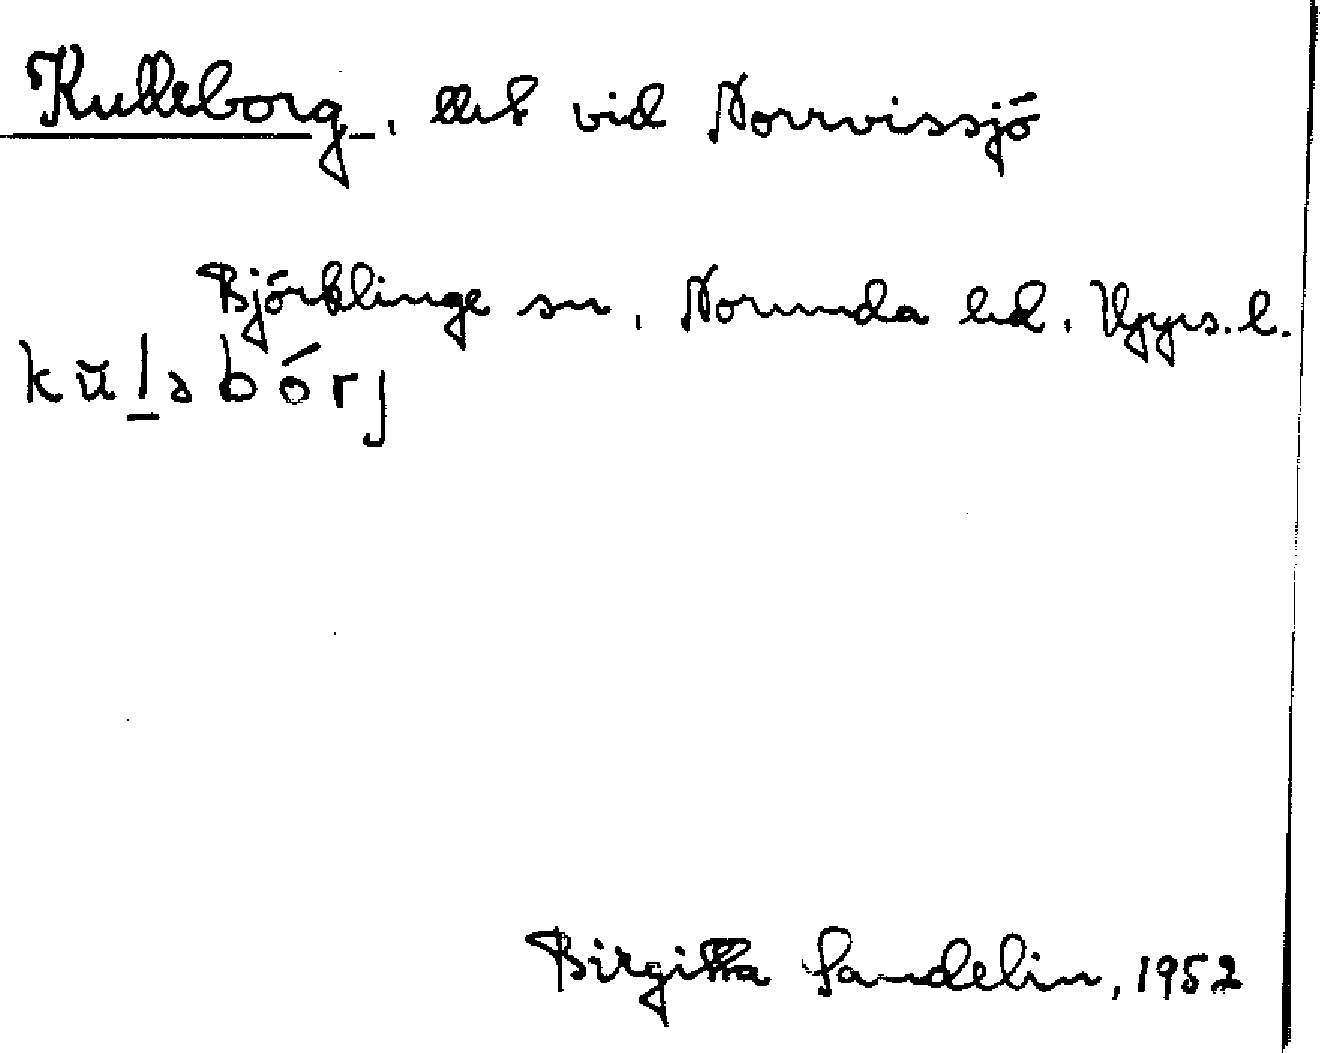 Kulleborg, llet vid Norrvissjö
Björklinge sn, Norunda hd, Upps. l.
kŭḻəbórj
Birgitta Sandelin, 1952